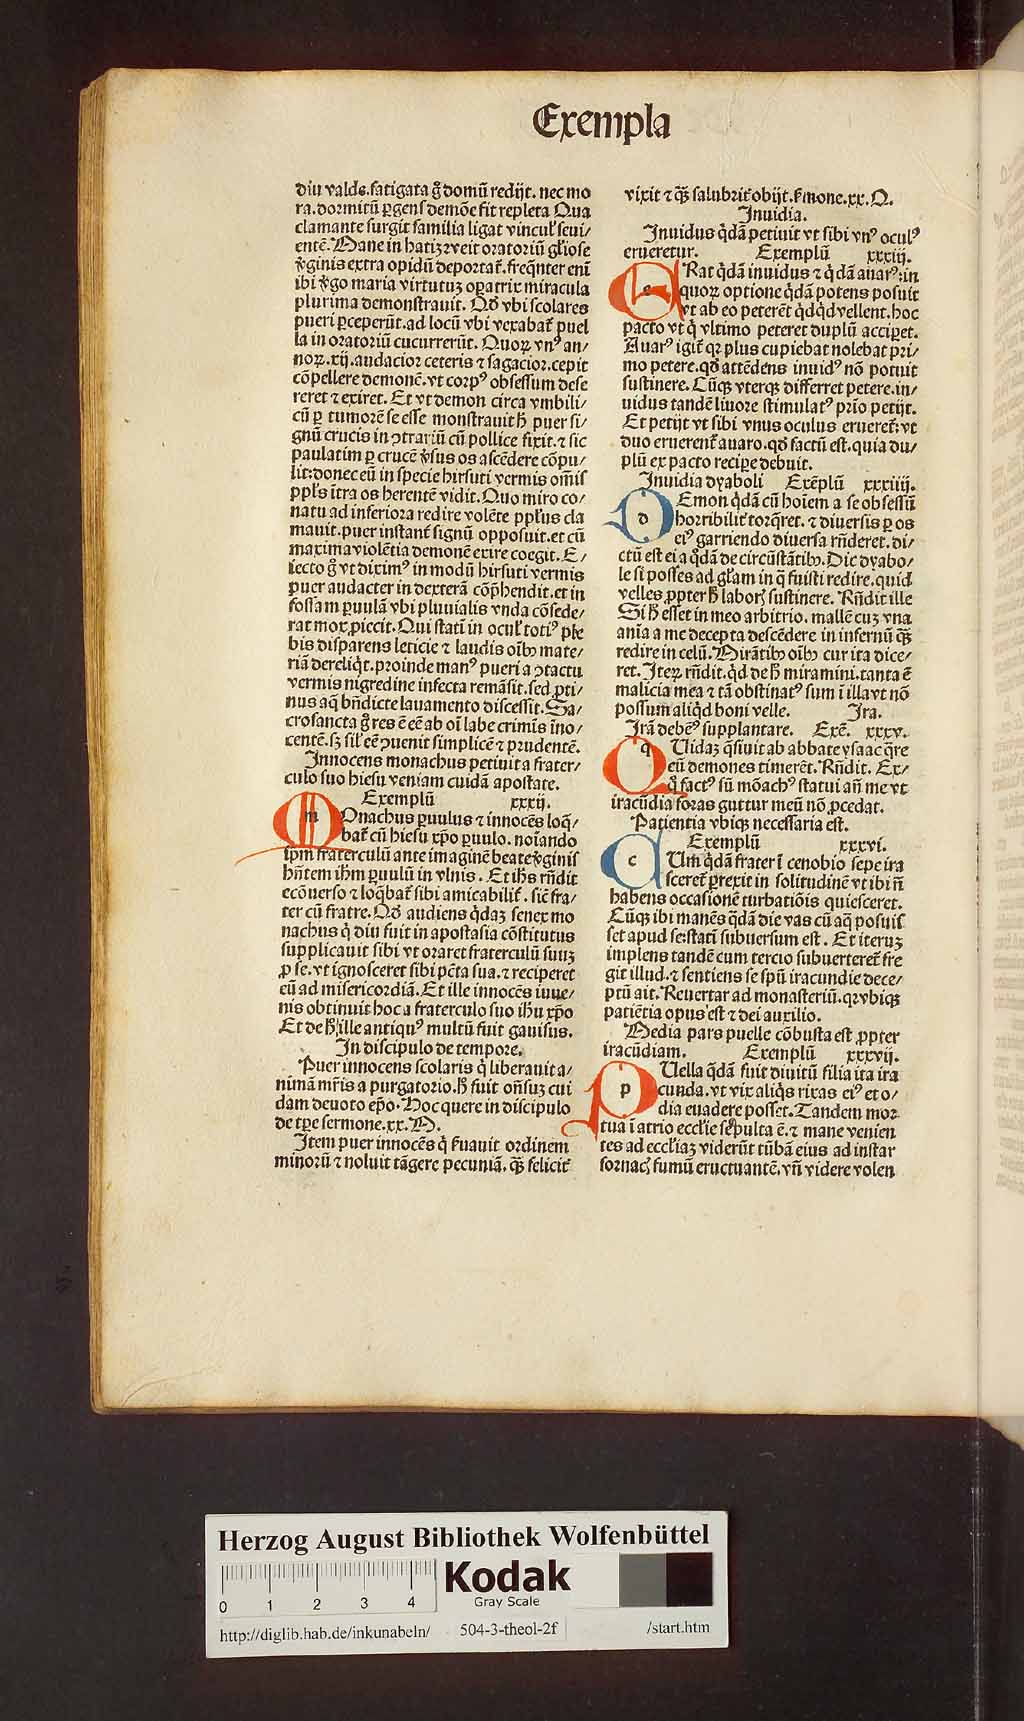 Exempla
diu valde. fatigata gͦ domū redijt. nec mo
ra. dormitū ꝑgens demōe fit repleta Qua
clamante surgit familia ligat vincul' seui/
entē. Mane in hatizvveit oratoriū gl'iose
v̄ginis extra opidū deportat̄. freq̄nter eni
ibi v̄go maria virtutuꝫ oꝑatrix miracula
plurima demonstrauit. Qd̄ vbi scolares
pueri ꝑceperūt. ad locū vbi vexabat̄ puel
la in oratoriū cucurrerūt. Quoꝝ vnꝰ an/
noꝝ. xij. audacior ceteris ⁊ sagacior. cepit
cōpellere demonē. vt corpꝰ obsessum dese
reret ⁊ exiret. Et vt demon circa vmbili/
cū ꝑ tumorē se esse monstrauit h̄ puer si/
gnū crucis in ꝯtrariū cū pollice fixit. ⁊ sic
paulatim ꝑ crucē v̄sus os ascēdere cōpu/
lit: donec eū in specie hirsuti vermis om̄is
ppl's ītra os herentē vidit. Quo miro co/
natu ad inferiora redire volēte ppl'us cla
mauit. puer instant̄ signū opposuit. et cū
maxima violētia demonē exire coegit. E/
iecto gͦ vt diximꝰ in modū hirsuti vermis
puer audacter in dexterā cōp̄hendit. et in
fossam ꝑuulā vbi pluuialis vnda cōsede/
rat mox ꝓiecit. Qui statī in ocul' totiꝰ ple
bis disparens leticie ⁊ laudis oib̄ mate/
riā dereliq̄t. proinde manꝰ pueri a ꝯtactu
vermis nigredine infecta remāsit. sed ꝓti/
nus aq̄ bn̄dicte lauamento discessit. Sa/
crosancta gͦ res ē eē ab oī labe crimīs īno/
centē. sꝫ sil' eē ꝯuenit simplicē ⁊ prudentē.
Innocens monachus petiuit a frater/
culo suo hiesu veniam cuidā apostate.
Exemplū xxxij.
mOnachus ꝑuulus ⁊ innocēs loq̄/
bat̄ cū hiesu xp̄o ꝑuulo. noiando
ip̄m fraterculū ante imaginē beate v̄ginis
hn̄tem ih̄m ꝑuulū in vlnis. Et ih̄s rn̄dit
ecōuerso ⁊ loq̄bat̄ sibi amicabilit̄. sic̄ fra/
ter cū fratre. Qd̄ audiens q̄daꝫ senex mo
nachus q̄ diu fuit in apostasia cōstitutus
supplicauit sibi vt oraret fraterculū suuꝫ
ꝓ se. vt ignosceret sibi pc̄ta sua. ⁊ reciperet
eū ad misericordiā. Et ille innocēs iuue/
nis obtinuit hoc a fraterculo suo ih̄u xp̄o
Et de h̄ ille antiquꝰ multū fuit gauisus.
In discipulo de tempore.
Puer innocens scolaris q̄ liberauit a/
nimā mr̄is a purgatorio. h̄ fuit on̄suꝫ cui
dam deuoto ep̄o. Hoc quere in discipulo
de tp̄e sermone. xx. N.
Item puer innocēs q̄ s̄uauit ordinem
minorū ⁊ noluit tāgere pecuniā. qꝫ̄ felicit̄
vixit ⁊ qꝫ̄ salubrit̄ obijt. s̄mone. xx. Q.
Inuidia.
Inuidus q̄dā petiuit vt sibi vnꝰ oculꝰ
erueretur. Exemplū xxxiij.
eRat q̄dā inuidus ⁊ q̄dā auarꝰ: in
quoꝝ optione q̄dā potens posuit
vt ab eo peterēt q̄dq̄d vellent. hoc
pacto vt q̄ vltimo peteret duplū acciꝑet.
Auarꝰ igit̄ qꝛ plus cupiebat nolebat pri/
mo petere. qd̄ attēdens inuidꝰ nō potuit
sustinere. Cūqꝫ vterqꝫ differret petere. in/
uidus tandē liuore stimulatꝰ p̄rio petijt.
Et petijt vt sibi vnus oculus eruereṫ: vt
duo eruerent̄ auaro. qd̄ factū est. quia du/
plū ex pacto recipe debuit.
Inuidia dyaboli Exēplū xxxiiij.
dEmon q̄dā cū hoīem a se obsessū
horribilit̄ torq̄ret. ⁊ diuersis ꝑ os
eiꝰ garriendo diuersa rn̄deret. di/
ctū est ei a q̄dā de circūstātib̄. Dic dyabo/
le si posses ad gl'am in q̄ fuisti redire. quid
velles ꝓpter h̄ laborꝭ sustinere. Rn̄dit ille
Si h̄ esset in meo arbitrio. mallē cuꝫ vna
aīa a me decepta descēdere in infernū qꝫ̄
redire in celū. Mirātib̄ oib̄ cur ita dice/
ret. Iteꝝ rn̄dit. q̄d de h̄ miramini. tanta ē
malicia mea ⁊ tā obstinatꝰ sum ī illa vt nō
possum aliq̄d boni velle. Ira.
Irā debemꝰ supplantare. Exē. xxxv.
qUidaꝫ q̄siuit ab abbate ysaac q̄re
eū demones timerēt. Rn̄dit. Ex/
q̄ factꝰ sū mōachꝰ statui an̄ me vt
iracūdia foras guttur meū nō ꝓcedat.
Patientia vbiqꝫ necessaria est.
Exemplū xxxvi.
cUm q̄dā frater ī cenobio sepe ira
sceret̄ ꝑrexit in solitudinē vt ibi n̄
habens occasionē turbatiōis quiesceret.
Cūqꝫ ibi manēs q̄dā die vas cū aq̄ posuis
set apud se: statī subuersum est. Et iteruꝫ
implens tandē cum tercio subuerteret̄ fre
git illud. ⁊ sentiens se sp̄ū iracundie dece/
ptū ait. Reuertar ad monasteriū. qꝛ vbiqꝫ
patiētia opus est ⁊ dei auxilio.
Media pars puelle cōbusta est ꝓpter
iracūdiam. Exemplū xxxvij.
pUella q̄dā fuit diuitū filia ita ira
cunda. vt vix aliq̄s rixas eiꝰ et o/
dia euadere posset. Tandem mor
tua ī atrio eccl'ie sepulta ē. ⁊ mane venien
tes ad eccl'iaꝫ viderūt tūbā eius ad instar
fornacꝭ fumū eructuantē. vn̄ videre volen
Herzog August Bibliothek Wolfenbüttel
Kodak
Gray Scale
0 1 2 3 4
http://diglib.hab.de/inkunabeln/ 504-3-theol-2f /start.htm